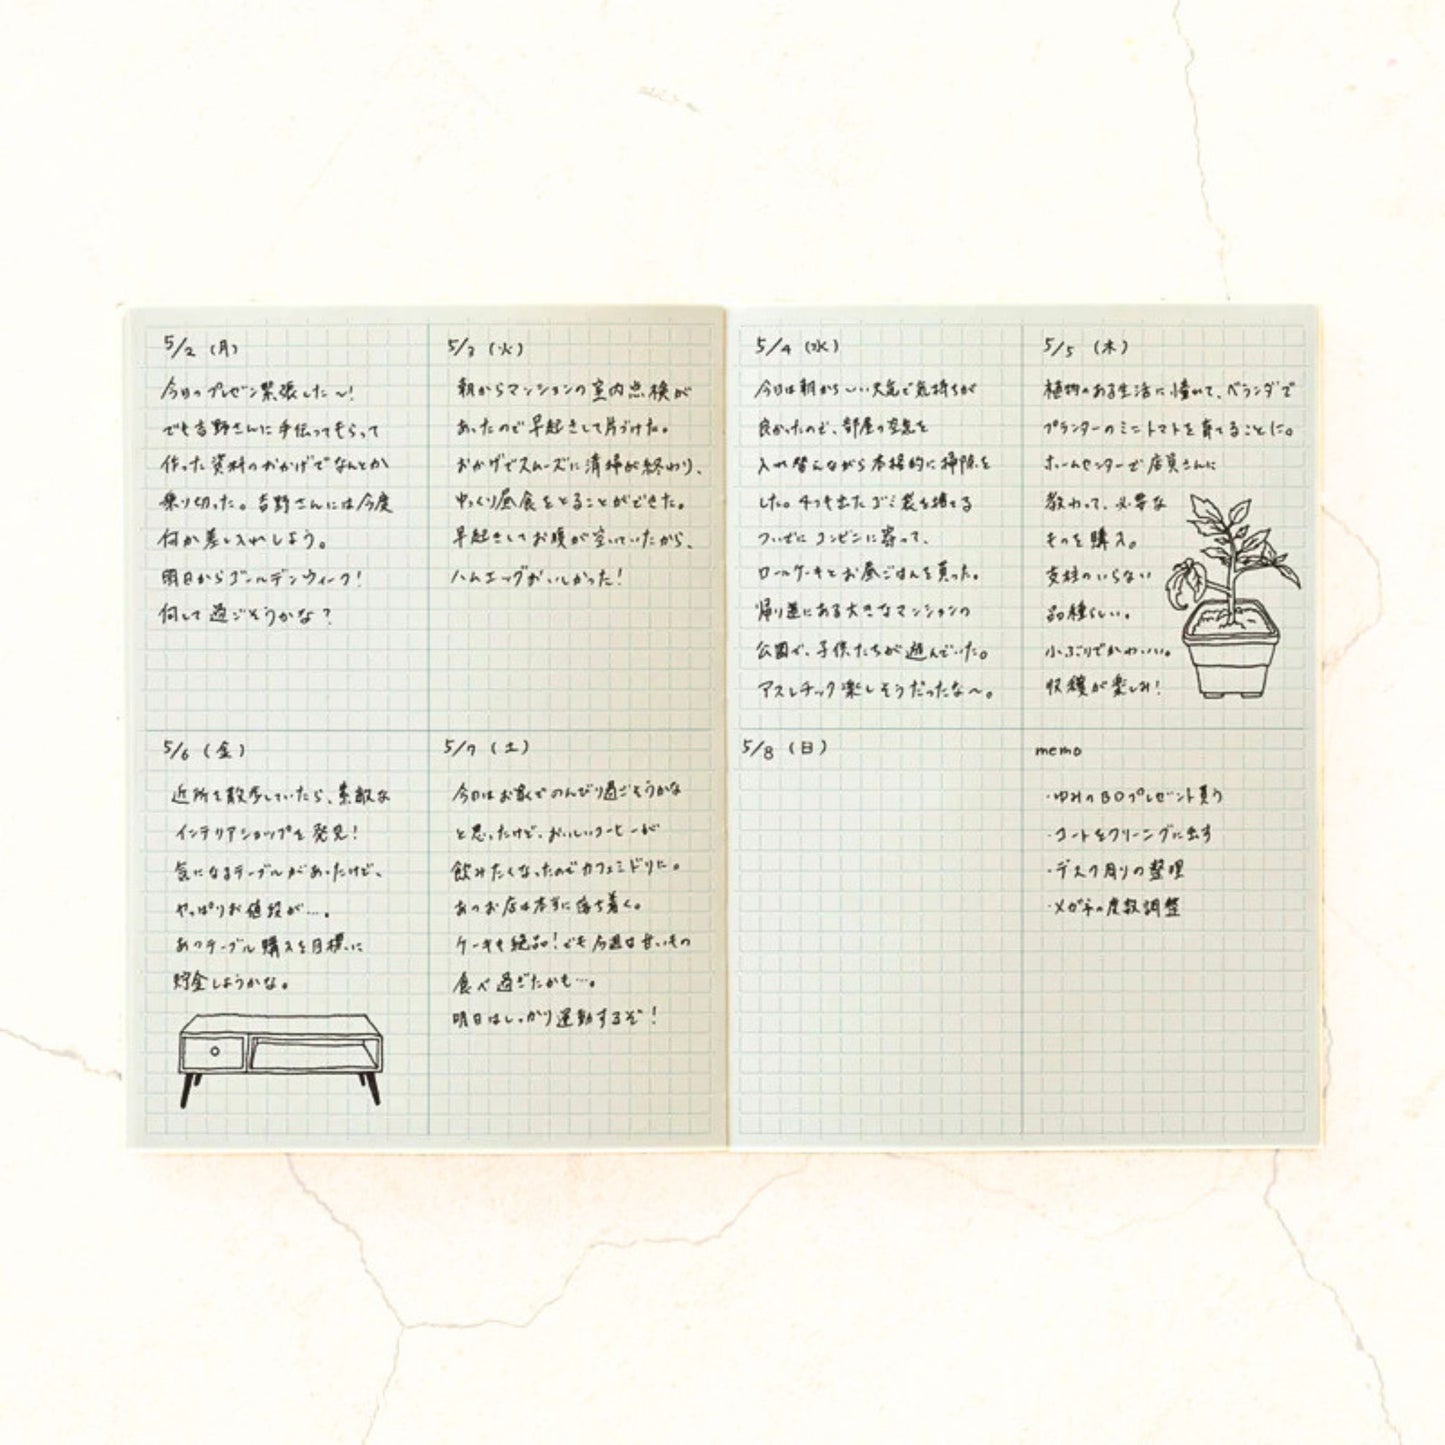 5/2 (月)
今日のプレゼン緊張した〜!
でも吉野さんに手伝ってもらって
作った資料のおかげでなんとか
乗り切った。吉野さんには今度
何か差し入れしよう。
明日からゴールデンウィーク!
何して過ごそうかな?
5/3 (火)
朝からマンションの室内点検が
あったので早起きして片づけた。
おかげでスムーズに清掃が終わり、
ゆっくり昼食をとることができた。
早起きしてお腹が空いていたから、
ハムエッグおいしかった!
5/4 (水)
今日は朝からいい天気で気持ちが
良かったので、部屋の空気を
入れ替えながら本格的に掃除を
した。4つも出たゴミ袋を捨てる
ついでにコンビニに寄って、
ロールケーキとお昼ごはんを買った。
帰り道にある大きなマンションの
公園で、子供たちが遊んでいた。
アスレチック楽しそうだったな〜。
5/5 (木)
植物のある生活に憧れて、ベランダで
プランターのミニトマトを育てることに。
ホームセンターで店員さんに
教わって、必要な
ものを購入。
支柱のいらない
品種らしい。
小ぶりでかわいい。
収穫が楽しみ!
5/6 (金)
近所を散歩していたら、素敵な
インテリアショップを発見!
気になるテーブルがあったけど、
やっぱりお値段が…。
あのテーブル購入を目標に
貯金しようかな。
5/7 (土)
今日はお家でのんびり過ごそうかな
と思ったけど、おいしいコーヒーが
飲みたくなったのでカフェミドリに。
あのお店は本当に落ち着く。
ケーキも絶品!でも今週は甘いもの
食べ過ぎたかも…。
明日はしっかり運動するぞ!
5/8 (日)
memo
・ゆみのBDプレゼント買う
・コートをクリーニングに出す
・デスク周りの整理
・メガネの度数調整